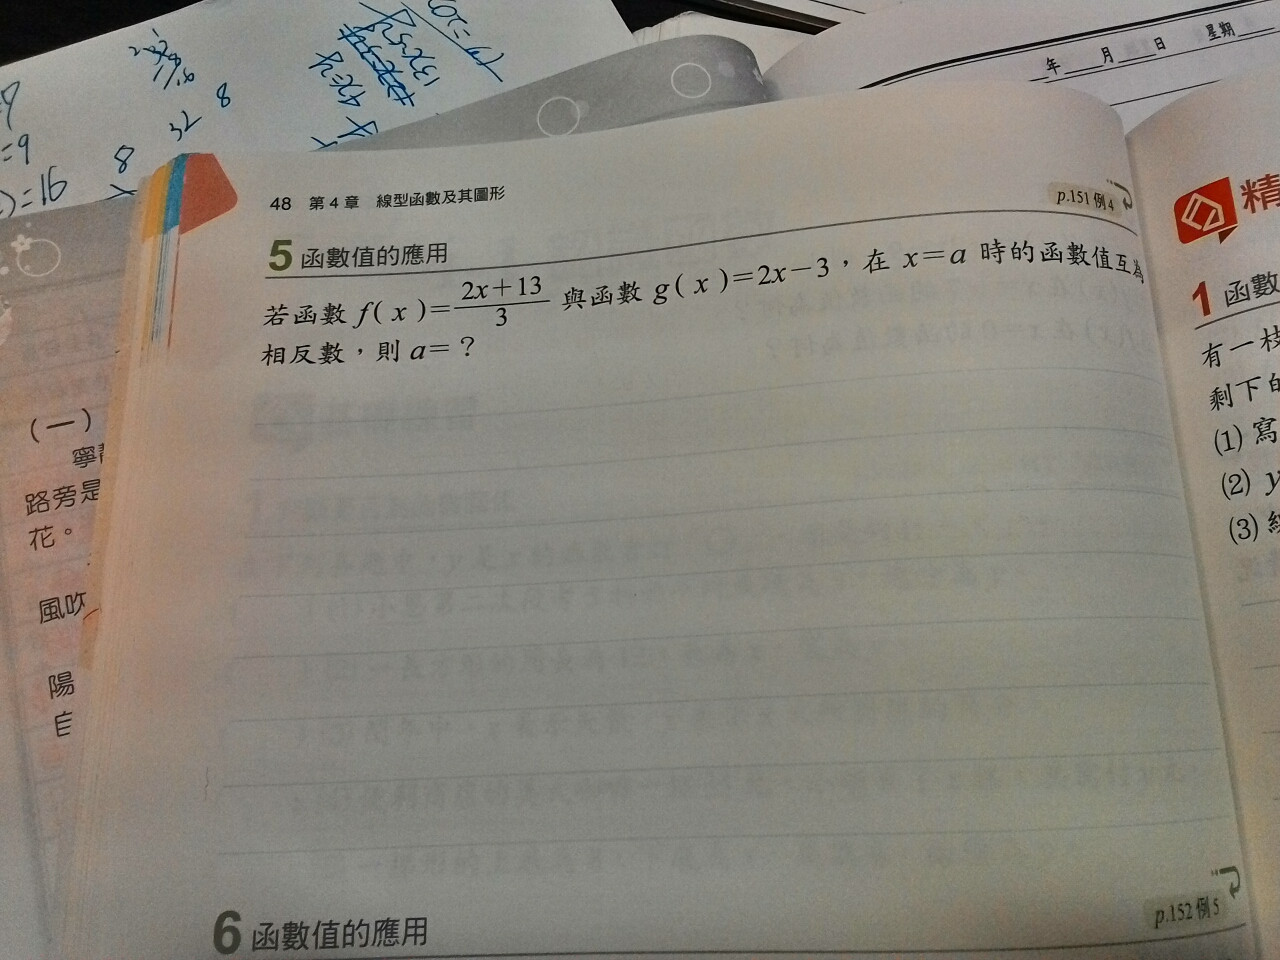 年 月 日 星期
=9
)=16
8
32 8
48 第4章 線型函數及其圖形
p.151例4
5 函數值的應用
若函數 f( x )=\frac{2x+13}{3} 與函數 g( x )=2x-3，在 x=a 時的函數值互為
相反數，則 a=？
6 函數值的應用
p.152例5
(一)
路旁是
花。
風吹
陽
自
精
1 函數
有一枝
剩下的
(1) 寫
(2) y
(3)